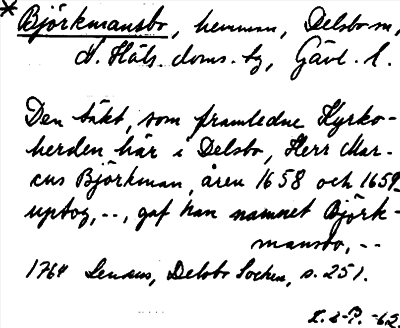 * Björkmansbo, hemman, Delsbo sn,
N. Häls. doms. hg, Gävl. l.
Den täkt, som framledne Kyrko-
herden här i Delsbo, Herr Mar-
cus Björkman, åren 1658 och 1659
uptog, --, gaf han namnet Björk-
mansbo, --
1764 Lenæus, Delsbo Socken, s. 251.